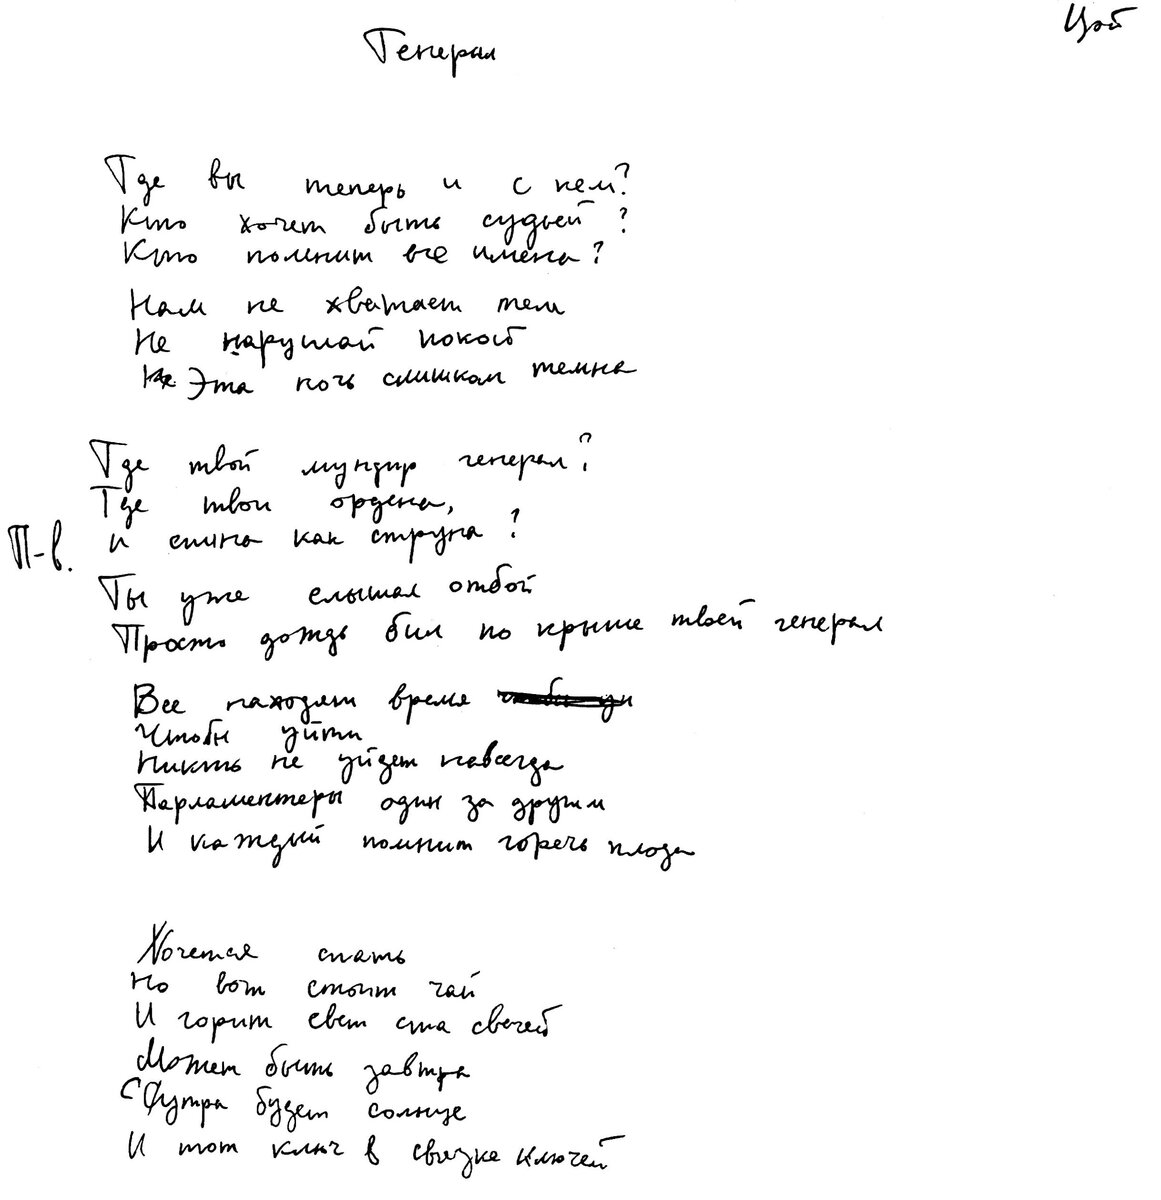 Цой
Генерал
Где вы теперь и с кем?
Кто хочет быть судьей?
Кто помнит все имена?
Нам не хватает тем
Не нарушай покой
Эта ночь слишком темна
Где твой мундир генерал?
Где твои ордена,
П-в. и спина как струна?
Ты уже слышал отбой
Просто дождь бил по крыше твоей генерал
Все находят время
Чтобы уйти
Никто не уйдет навсегда
Парламентеры один за другим
И каждый помнит горечь плода
Хочется спать
Но вот стоит чай
И горит свет ста свечей
Может быть завтра
С утра будет солнце
И тот ключ в связке ключей